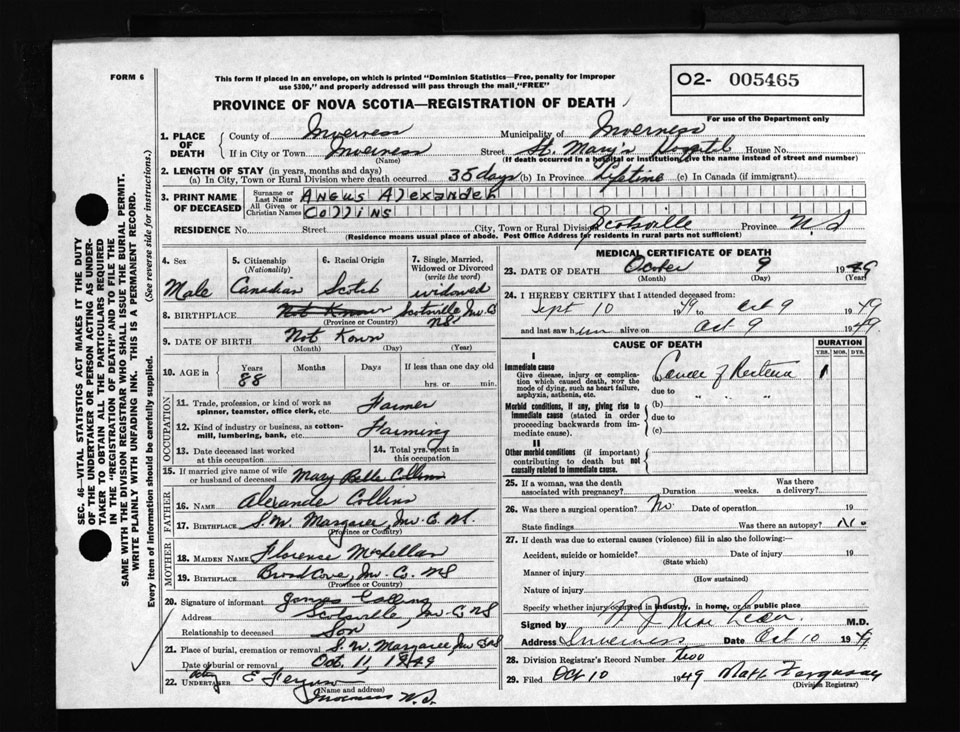 FORM 6
This form if placed in an envelope, on which is printed "Dominion Statistics—Free, penalty for improper
use $300," and properly addressed will pass through the mail "FREE"
O2- 005465
For use of the Department only
PROVINCE OF NOVA SCOTIA—REGISTRATION OF DEATH
SEC. 46—VITAL STATISTICS ACT MAKES IT THE DUTY
OF THE UNDERTAKER OR PERSON ACTING AS UNDER-
TAKER TO OBTAIN ALL THE PARTICULARS REQUIRED
IN THE "REGISTRATION OF DEATH" AND TO FILE THE
SAME WITH THE DIVISION REGISTRAR WHO SHALL ISSUE THE BURIAL PERMIT.
WRITE PLAINLY WITH UNFADING INK. THIS IS A PERMANENT RECORD.
Every item of information should be carefully supplied. (See reverse side for instructions.)
1. PLACE OF DEATH
County of Inverness Municipality of Inverness
If in City or Town Inverness Street St. Mary's Hospital House No.
(Name) (If death occurred in a hospital or institution, give the name instead of street and number)
2. LENGTH OF STAY (in years, months and days)
(a) In City, Town or Rural Division where death occurred 35 days (b) In Province Lifetime (c) In Canada (if immigrant)
3. PRINT NAME OF DECEASED
Surname or Last Name Angus Alexander
All Given or Christian Names Collins
RESIDENCE No. Street City, Town or Rural Division Scotsville Province N S
(Residence means usual place of abode. Post Office Address for residents in rural parts not sufficient)
4. Sex Male
5. Citizenship (Nationality) Canadian
6. Racial Origin Scotch
7. Single, Married, Widowed or Divorced (write the word) widowed
8. BIRTHPLACE Not Known Scotsville Inv. C NS
(Province or Country)
9. DATE OF BIRTH Not Kown
(Month) (Day) (Year)
10. AGE in Years 88 Months Days If less than one day
hrs. or min.
OCCUPATION
11. Trade, profession, or kind of work as
spinner, teamster, office clerk, etc. Farmer
12. Kind of industry or business, as cotton-
mill, lumbering, bank, etc. Farming
13. Date deceased last worked
at this occupation
14. Total yrs. spent in
this occupation
15. If married give name of wife
or husband of deceased Mary Belle Collins
FATHER
16. Name Alexande Collins
17. Birthplace S. W. Margaree, Inv. C.
(Province or Country)
MOTHER
18. Maiden Name Florence McLellan
19. Birthplace Broad Cove, Inv. Co. NS
(Province or Country)
20. Signature of informant James Collins
Address Scotsville, Inv C NS
Relationship to deceased Son
21. Place of burial, cremation or removal S. W. Margaree Inv
Date of burial or removal Oct. 11, 1949
22. Undertaker Acting E
(Name and address)
Inverness N.S.
MEDICAL CERTIFICATE OF DEATH
23. DATE OF DEATH Ocober 9 1949
(Month) (Day) (Year)
24. I HEREBY CERTIFY that I attended deceased from:
Sept 10 1949 to Oct 9 1949
and last saw him alive on Oct 9 1949
CAUSE OF DEATH DURATION
YRS. MOS. DYS.
I
Immediate cause
Give disease, injury or compli-
cation which caused death, NOT the
mode of dying, such as heart failure,
asphyxia, asthenia, etc.
(a) Cancer of Rectum 1
due to
Morbid conditions, if any, giving rise to
immediate cause (stated in order
proceeding backwards from im-
mediate cause).
(b) " " "
due to
(c)
II
Other morbid conditions (if important)
contributing to death but not
causally related to immediate cause.
25. If a woman, was the death
associated with pregnancy? Duration weeks. Was there
a delivery?
26. Was there a surgical operation? No. Date of operation 19
State findings Was there an autopsy? No.
27. If death was due to external causes (violence) fill in also the following:—
Accident, suicide or homicide? Date of injury 19
(State which)
Manner of injury
(How sustained)
Nature of injury
Specify whether injury occurred in industry, in home, or in public place
Signed by M.D.
Address Inverness Date Oct 10 1949
28. Division Registrar's Record Number two
29. Filed Oct 10 1949
(Division Registrar)